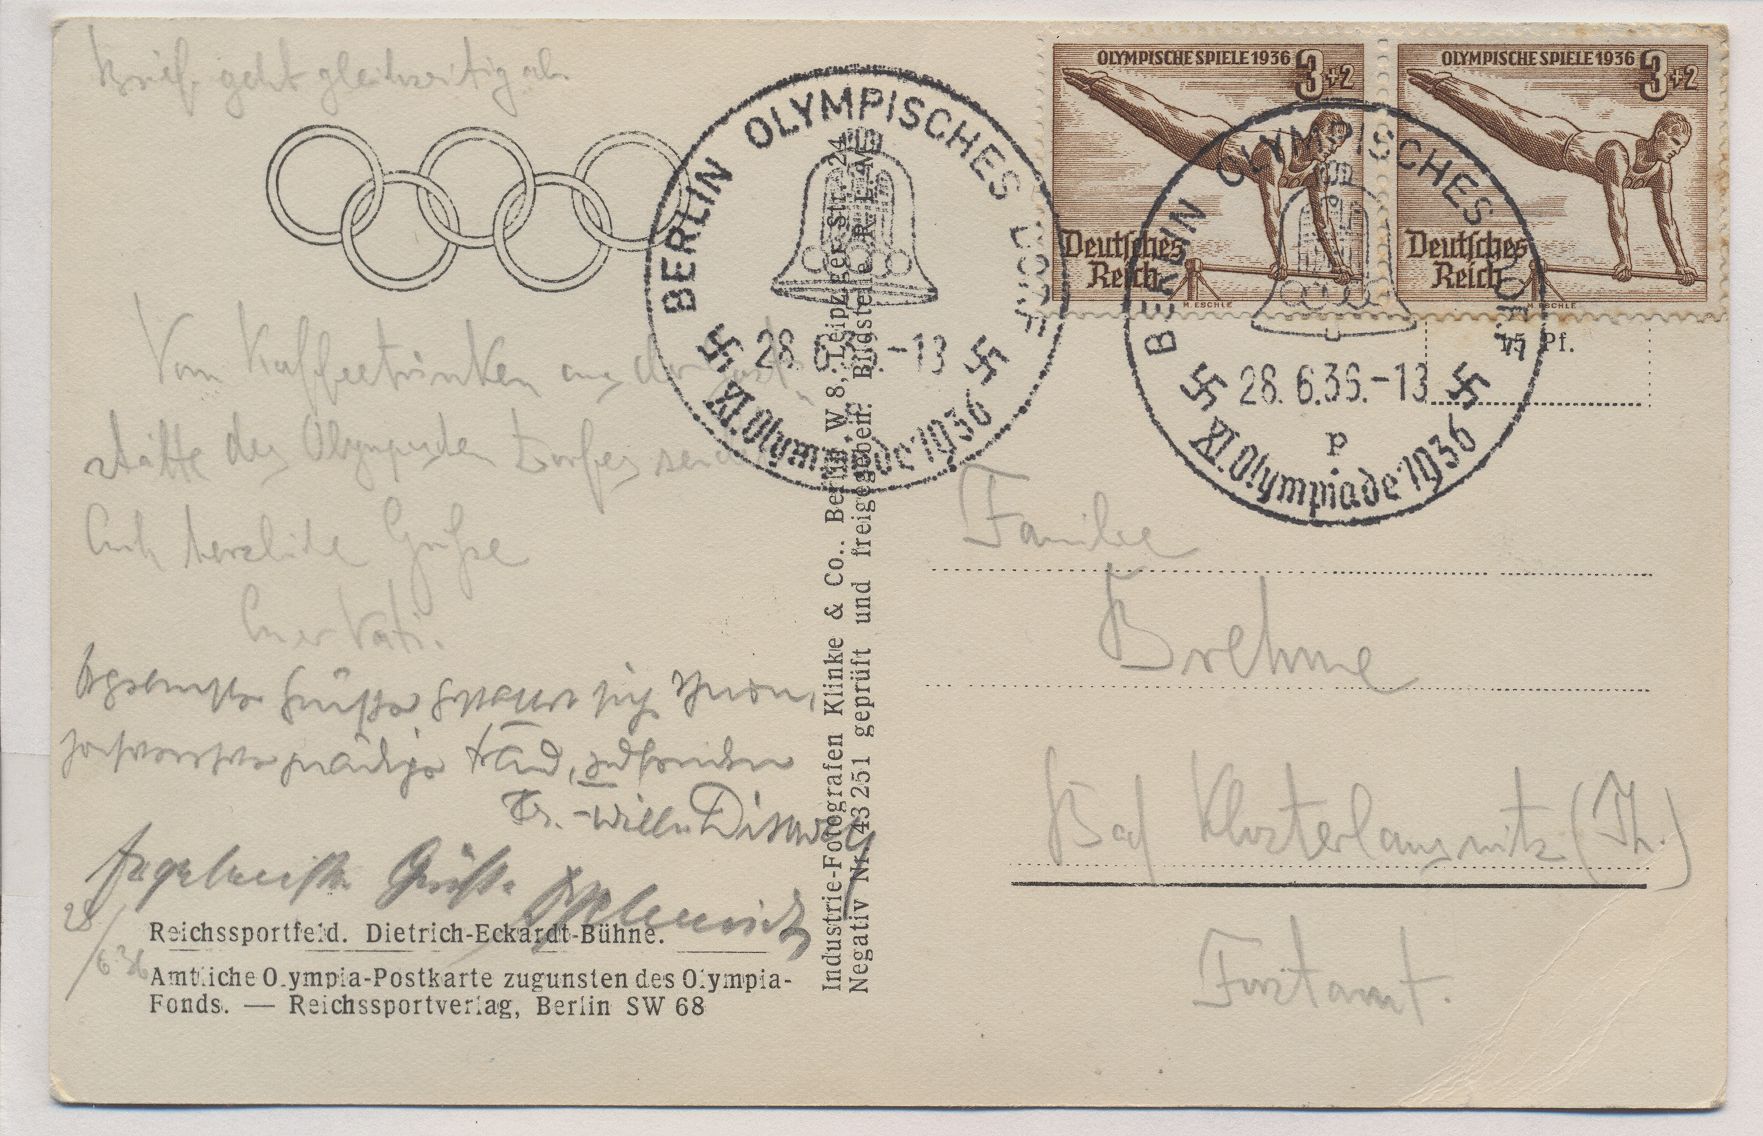 Brief geht gleichzeitig ab.
OLYMPISCHE SPIELE 1936 3+2
Deutsches
Reich
M. ESCHLE
OLYMPISCHE SPIELE 1936 3+2
Deutsches
Reich
M. ESCHLE
BERLIN OLYMPISCHES DORF
28.6.36.-13
XI. Olympiade 1936
BERLIN OLYMPISCHES DORF
28.6.36.-13
p
XI. Olympiade 1936
15 Pf.
Vom Kaffeetrinken aus der
stätte des Olympischen Dorfes sendet
Euch herzliche Grüße
Euer Vati.
Grüße sich
Hand,
Fr.-Willi
Grüße
28/6 36
Reichssportfeld. Dietrich-Eckardt-Bühne.
Amtliche Olympia-Postkarte zugunsten des Olympia-
Fonds. — Reichssportverlag, Berlin SW 68
Industrie-Fotografen Klinke & Co., Berlin W 8, Leipziger Str. 24
Negativ Nr. 43 251 geprüft und freigegeben. Bildstelle R L M
Familie
Brehme
Bad Klosterlausnitz (Th.)
Forstamt.